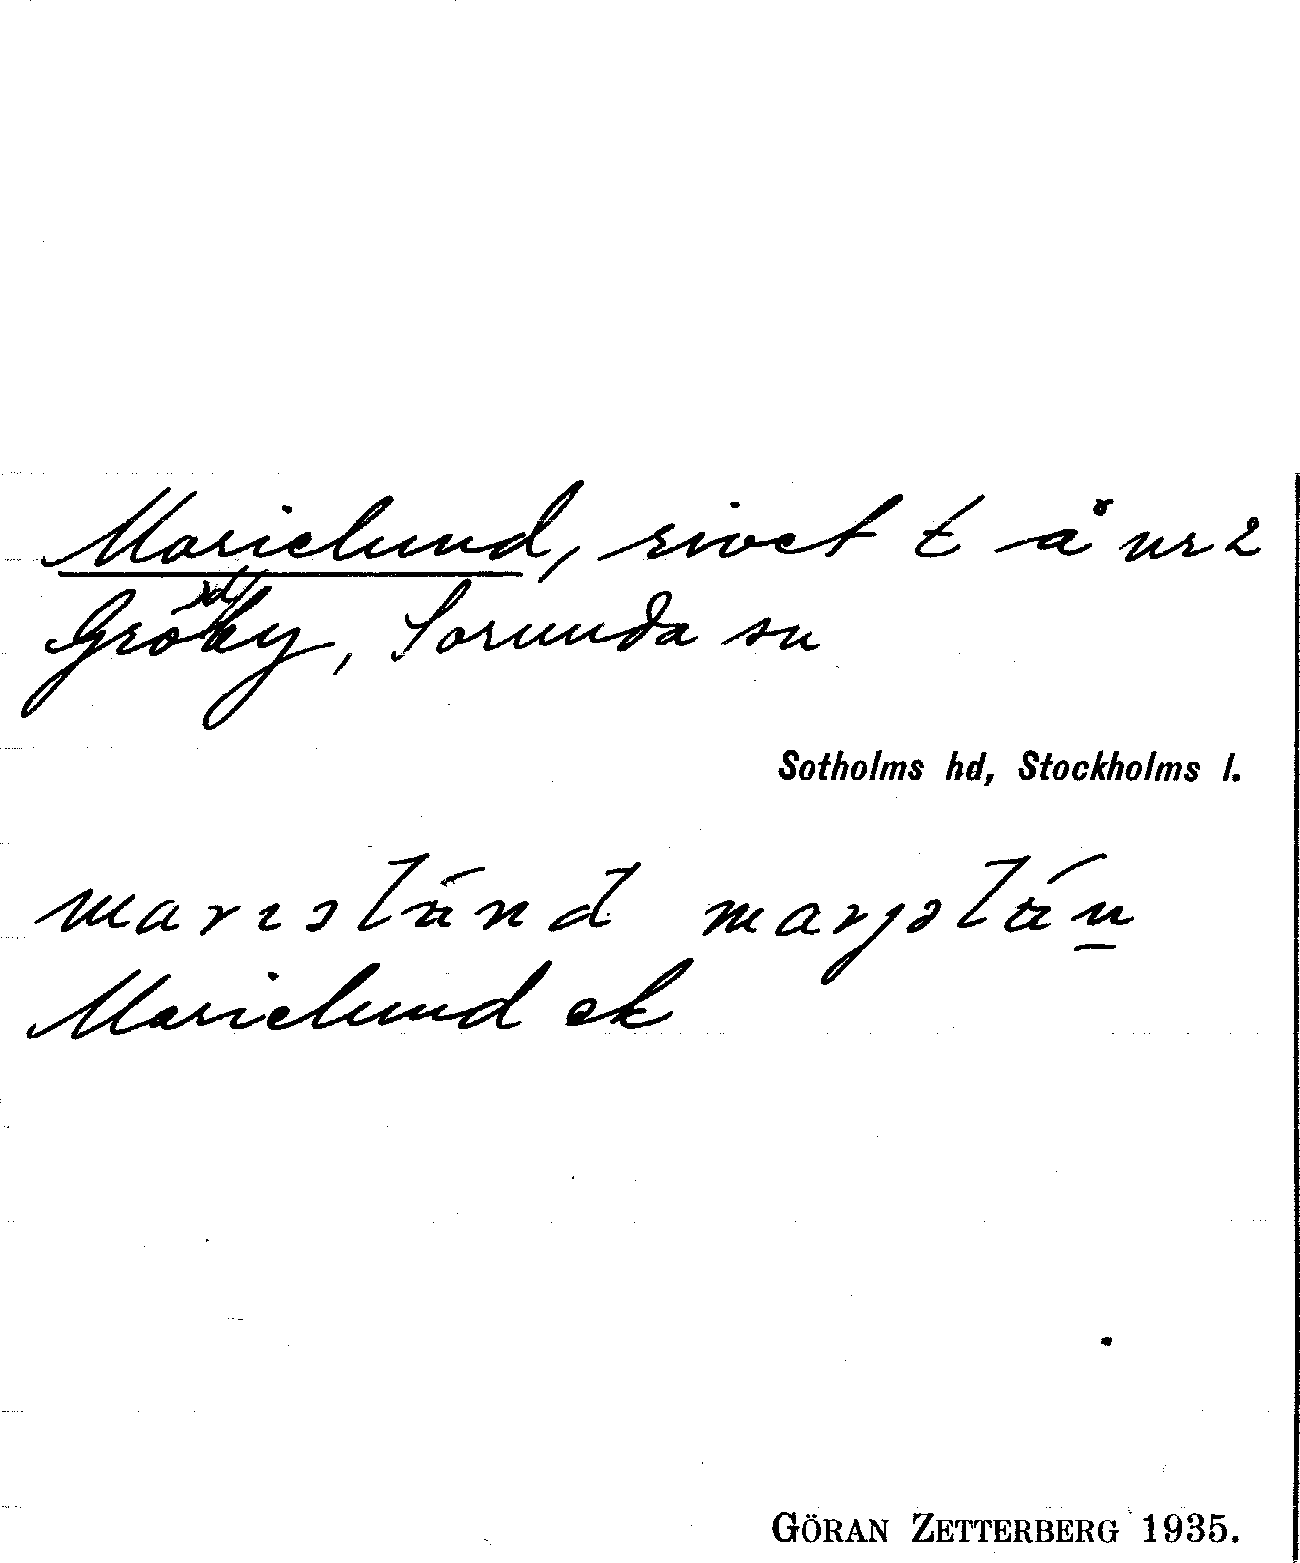 Marielund, rivet t å nr 2
Gröndby, Sorunda sn
Sotholms hd, Stockholms l.
Marielund ek
GÖRAN ZETTERBERG 1935.